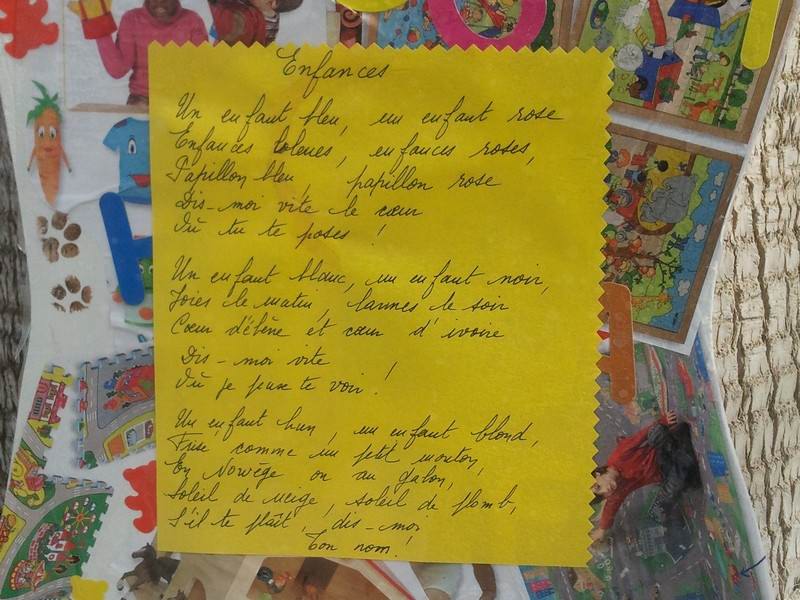 Enfances
Un enfant bleu, un enfant rose
Enfances bleues, enfances roses,
Papillon bleu papillon rose
Dis-moi vite le cœur
Où tu te poses !
Un enfant blanc, un enfant noir,
Joies le matin, larmes le soir
Cœur d'ébène et cœur d'ivoire
Dis-moi vite
Où je peux te voir !
Un enfant brun, un enfant blond,
Frisé comme un petit mouton,
En Norvège ou au Gabon,
Soleil de neige, soleil de plomb,
S'il te plaît, dis-moi
Ton nom !